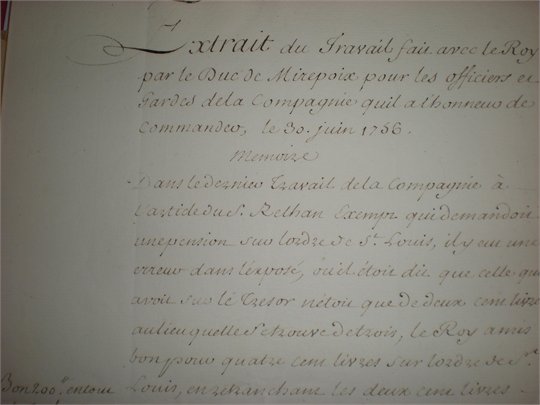 Extrait du Travail fait avec le Roy
par le Duc de Mirepoix pour les officiers et
Gardes dela Compagnie quil a l'honneur de
Commander, le 30. juin 1756.
Memoire
Dans le dernier Travail dela Compagnie à
l'article du S. Rethan Exempt qui demandoit
une pension sur lordre de St. Louis, il y eu une
erreur dans l'exposé, où il étoit dit que celle qu
avoit sur le Tresor n'étoit que de deux cent livre
au lieu quelle se trouve de trois, le Roy a mis
bon pour quatre cent livres sur lordre de St.
Louis, en retranchant les deux cent livres
Bon 200.